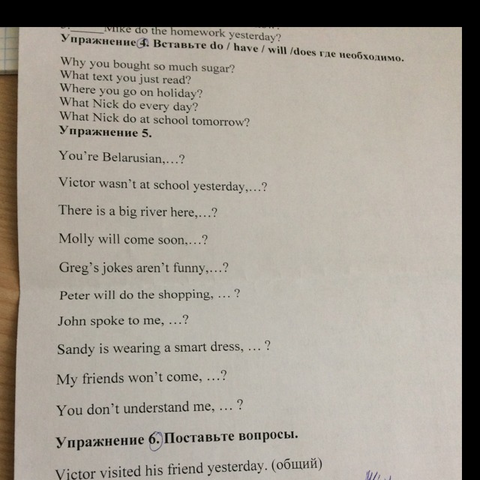 Mike do the homework yesterday?
Упражнение 4. Вставьте do / have / will /does где необходимо.
Why you bought so much sugar?
What text you just read?
Where you go on holiday?
What Nick do every day?
What Nick do at school tomorrow?
Упражнение 5.
You're Belarusian,…?
Victor wasn't at school yesterday,…?
There is a big river here,…?
Molly will come soon,…?
Greg's jokes aren't funny,…?
Peter will do the shopping, … ?
John spoke to me, …?
Sandy is wearing a smart dress, … ?
My friends won't come, …?
You don't understand me, … ?
Упражнение 6. Поставьте вопросы.
Victor visited his friend yesterday. (общий)